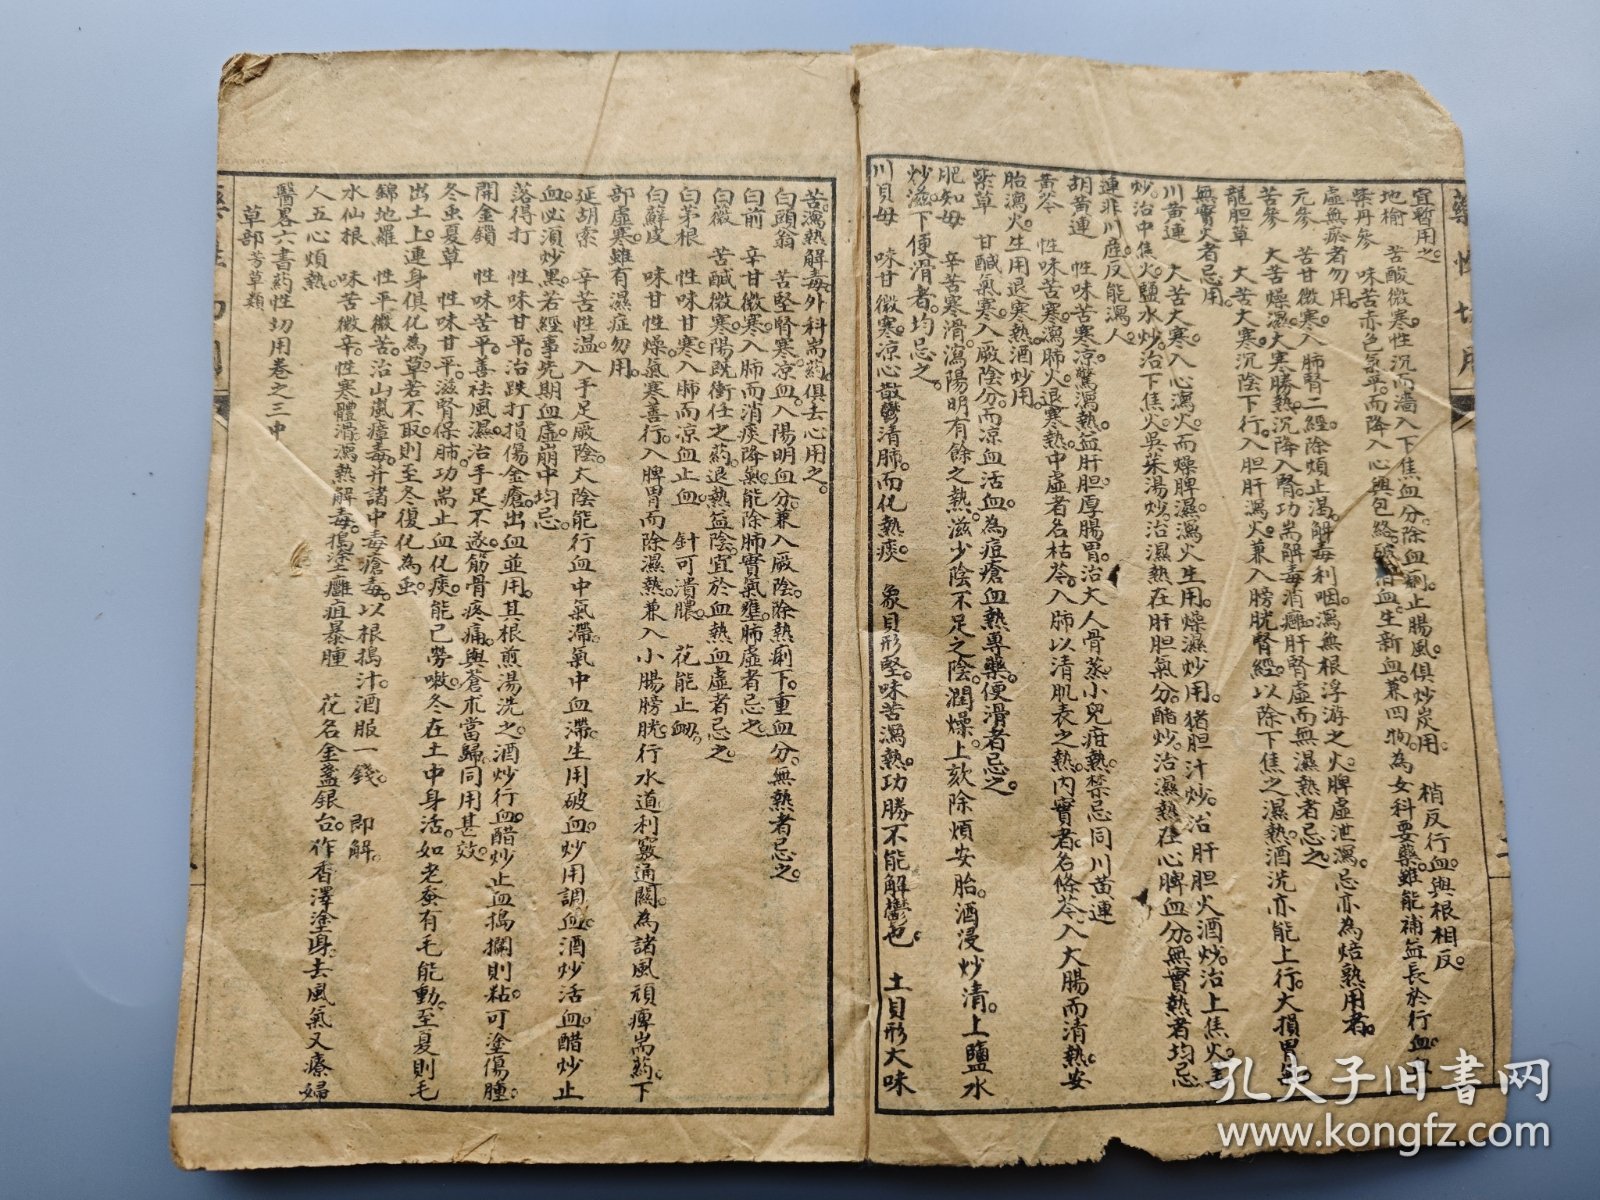 宜暫用之
地榆　苦酸微寒性沉而濇入下焦血分除血痢止腸風俱炒炭用　稍反行血與根相反
紫丹參　味苦赤色氣平而降入心與包絡血生新血兼四物為女科要藥雖能補益長於行血血
虛無瘀者勿用
元參　苦甘微寒入肺腎二經除煩止渴解毒利咽瀉無根浮游之火脾虛泄瀉忌亦為焙熟用者
苦參　大苦燥濕大寒勝熱沉降入腎功耑解毒消癰肝腎虛而無濕熱者忌之
龍胆草　大苦大寒沉陰下行入胆肝瀉火兼入膀胱腎經以除下焦之濕熱酒洗亦能上行大損胃
無實火者忌用
川黃連　大苦大寒入心瀉火而燥脾濕瀉火生用燥濕炒用猪胆汁炒治肝胆火酒炒治上焦火
炒治中焦火鹽水炒治下焦火吳茱湯炒治濕熱在肝胆氣分醋炒治濕熱在心脾血分無實熱者均忌
連非川庭反能瀉人
胡黃連　性味苦寒涼驚瀉熱益肝胆厚腸胃治大人骨蒸小兒疳熱禁忌同川黃連
黃芩　性味苦寒瀉肺火退寒熱中虛者名枯芩入肺以清肌表之熱內實者名條芩入大腸而清熱安
胎瀉火生用退寒熱酒炒用
紫草　甘鹹氣寒入厥陰分而涼血活血為痘瘡血熱專藥便滑者忌之
肥知母　辛苦寒滑瀉陽明有餘之熱滋少陰不足之陰潤燥上欬除煩安胎酒浸炒清上鹽水
炒滋下便滑者均忌之
川貝母　味甘微寒涼心散鬱清肺而化熱痰　象貝形堅味苦瀉熱功勝不能解鬱也　土貝形大味
苦瀉熱解毒外科耑葯俱去心用之
白頭翁　苦堅腎寒涼血入陽明血分兼入厥陰除熱痢下重血分無熱者忌之
白前　辛甘微寒入肺而消痰降氣能除肺實氣壅肺虛者忌之
白薇　苦鹹微寒陽既衝任之葯退熱益陰宜於血熱血虛者忌之
白茅根　性味甘寒入肺而涼血止血　針可潰膿　花能止衂
白鮮皮　味甘性燥氣寒善行入脾胃而除濕熱兼入小腸膀胱行水道利竅通關為諸風頑痺耑葯下
部虛寒雖有濕症勿用
延胡索　辛苦性溫入手足厥陰太陰能行血中氣滯氣中血滯生用破血炒用調血酒炒活血醋炒止
血必須炒黑若經事先期血虛崩中均忌
落得打　性味甘平治跌打損傷金瘡出血並用其根煎湯洗之酒炒行血醋炒止血搗擱則粘可塗傷腫
開金鎖　性味苦平善祛風濕治手足不遂筋骨疼痛與蒼朮當歸同用甚效
冬虫夏草　性味甘平滋腎保肺功耑止血化痰能已勞嗽冬在土中身活如老蚕有毛能動至夏則毛
出土上連身俱化為草若不取則至冬復化為虫
錦地羅　性平微苦治山嵐瘴毒并諸中毒瘡毒以根搗汁酒服一錢　即解
水仙根　味苦微辛性寒體滑瀉熱解毒搗塗癰疽暴腫　花名金盞銀台作香澤塗身去風氣又療婦
人五心煩熱
醫畧六書葯性切用卷之三中
草部芳草類
孔夫子旧书网
www.kongfz.com